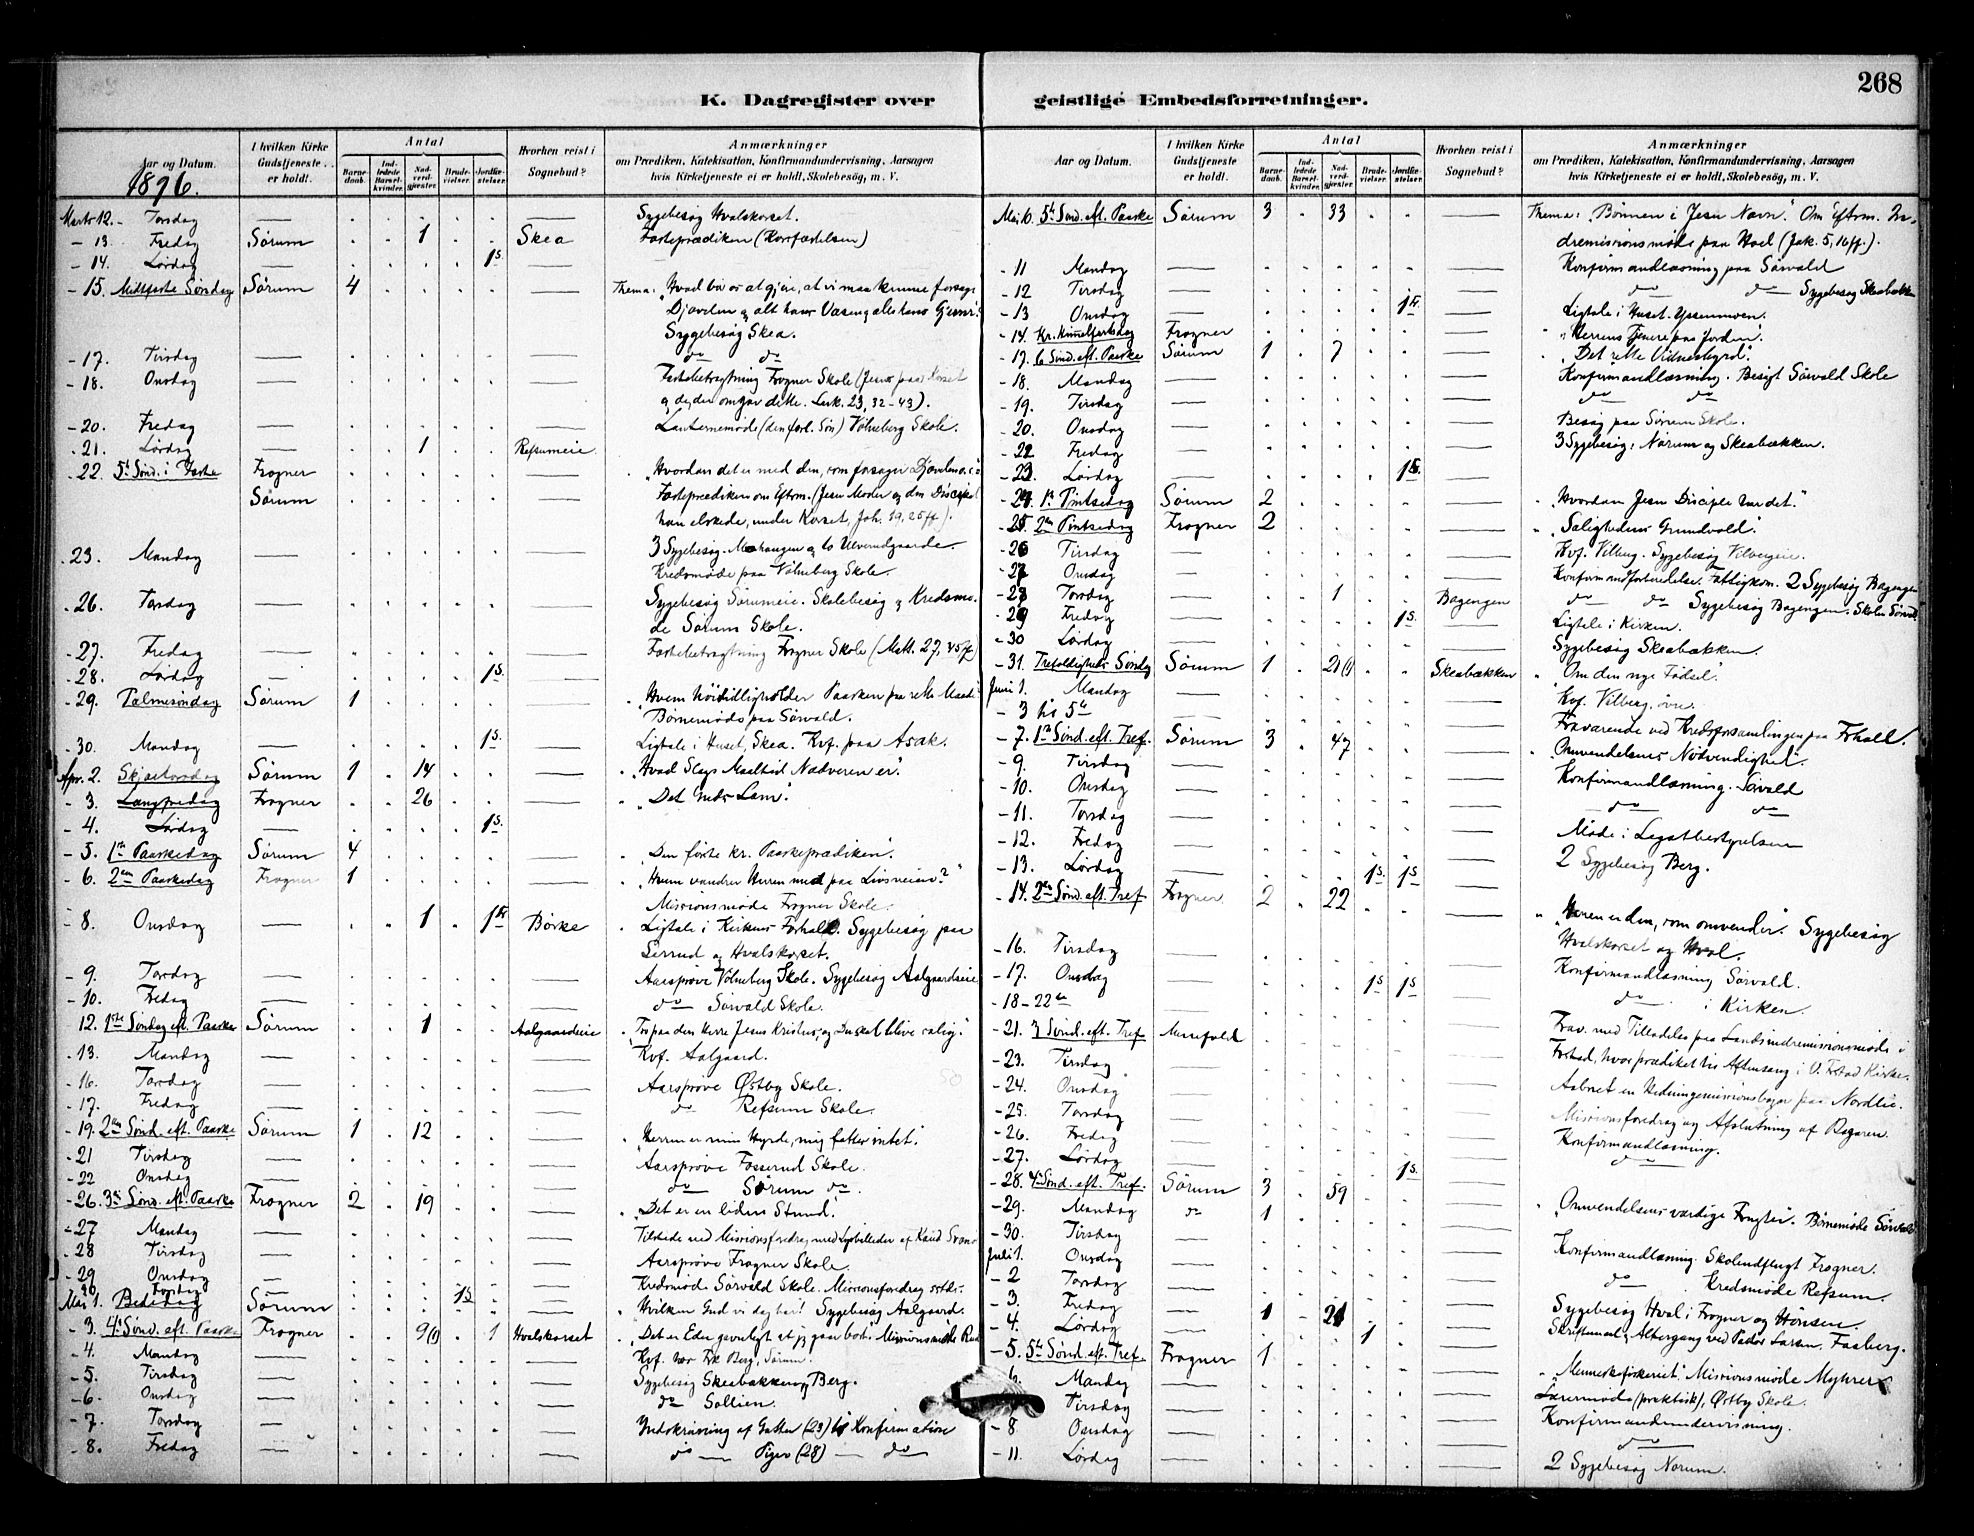 268
K. Dagregister over geistlige Embedsforretninger.
Aar og Datum.
I hvilken Kirke Gudstjeneste er holdt.
Antal
Barnedaab.
Indledede Barselkvinder.
Nadverdgjæster
Brudevielser.
Jordfæstelser.
Hvorhen reist i Sognebud?
Anmærkninger
om Prædiken, Katekisation, Konfirmandundervisning, Aarsagen
hvis Kirketjeneste ei er holdt, Skolebesøg, m. V.
1896.
Marts 12. Torsdag — Sygebesøg Hvalskorset.
- 13. Fredag Sørum 1 Skea Fasteprædiken (Korsfæstelsen)
- 14. Lørdag — 1 S.
- 15. Midtfaste Søndag Sørum 4 Thema: "Hvad bør os at gjøre, at vi maa kunne forsage
Djævelen og alt hans Væsen og alle hans Gjern."
Sygebesøg Skea.
- 17. Tirsdag — do do
- 18. Onsdag — Fastebetragtning Frogner Skole (Jesus paa Korset
og de, der omgav dette. Luk. 23, 32-43).
- 20. Fredag — Lanternemøde (den forl. Søn) Vølneberg Skole.
- 21. Lørdag — 1 Refsumeie.
- 22. 5te Sønd. i Faste Frogner "Hvordan det er med den, som forsager Djævelen o.s.v.
Sørum Fasteprædiken om Eftrm. (Jesu Moder og den Discipel
han elskede, under Korset, Joh. 19, 25ff).
- 23. Mandag — 3 Sygebesøg
Kredsmøde paa Vølneberg Skole.
- 26. Torsdag — Sygebesøg Sørumeie. Skolebesøg og Kredsmø-
de Sørum Skole.
- 27. Fredag — Fastebetragtning Frogner Skole (Matt. 27, 45ff)
- 28. Lørdag — 1 S.
- 29. Palmesøndag Sørum 1 "Hvem høitidligholder Paasken paa rette Maade"
Børnemøde paa Sørvald.
- 30. Mandag — 1 S. Ligtale i Huset, Skea. Kvf. paa Asak.
Apr. 2. Skjærtorsdag Sørum 1 14 "Hvad Slags Maaltid Nadveren er".
- 3. Langfredag Frogner 26 "Det Guds Lam".
- 4. Lørdag — 1 S.
- 5. 1ste Paaskedag Sørum 4 "Den første kr. Paaskeprædiken".
- 6. 2den Paaskedag Frogner 1 "Hvem vandrer Herren med paa Livsveien?"
Missionsmøde Frogner Skole.
- 8. Onsdag — 1 1 Fr. Børke Ligtale i Kirkens Forhal. Sygebesøg paa
Lerrud og Hvalskorset.
- 9. Torsdag — Aarsprøve Vølneberg Skole. Sygebesøg Aalgaardseie
- 10. Fredag — do Sørvald Skole.
12. 1ste Søndag eft. Paaske Sørum 1 Aalgaardseie "Tro paa den Herre Jesus Kristus, og Du skal blive salig."
- 13. Mandag — Kvf. Aalgaard.
- 16. Torsdag — Aarsprøve Østby Skole.
- 17. Fredag — do Refsum Skole.
- 19. 2den Sønd. eft. Paaske Sørum 1 12 "Herren er min Hyrde, mig fattes intet".
- 21 Tirsdag — Aarsprøve Fosserud Skole.
- 22 Onsdag — do Sørum do.
- 26. 3die Sønd. eft. Paaske Frogner 2 19 "Det er en liden Stund".
- 27 Mandag — Tilstede ved Missionsforedrag med Lysbilleder af Kand.
- 28 Tirsdag — Aarsprøve Frogner Skole.
- 29 Onsdag — Kredsmøde Sørvald Skole. Missionsforedrag
30 Torsdag — 1 S
Mai 1. Bededag Sørum "Hvilken Gud vi dog har! Sygebesøg Aalgaard.
- 3. 4de Sønd. eft. Paaske Frogner 9 (1) 1 Hvalskorset "Det er Eder gavnligt at jeg gaar bort". Missionsmøde
- 4. Mandag — Kvf. hos Frk Berg, Sørum.
- 5. Tirsdag — Sygebesøg Skeabakken og Berg.
- 6. Onsdag — do Sollien.
- 7. Torsdag — Indskrivning af Gutter (23) til Konfirmation
- 8. Fredag — do — Piger (28) — do
Mai 10. 5te Sønd. eft. Paaske Sørum 3 33 Thema: "Bønnen i Jesu Navn". Om Eftrm. In-
dremissionsmøde paa Hoel (Jak. 5, 16ff).
- 11 Mandag Konfirmandlæsning paa Sørvald
- 12 Tirsdag do do Sygebesøg Skeabakken
- 13 Onsdag 1 Fr. Ligtale i Huset.
- 14. Kr. Himmelfartsdag Frogner "Herrens Tjenere paa Jorden".
- 17. 6 Sønd. eft. Paaske Sørum 1 7 "Det rette Vidnesbyrd".
- 18. Mandag — Konfirmandlæsning. Besigt Sørvald Skole
- 19. Tirsdag — do do
- 20. Onsdag — Besøg paa Sørum Skole.
- 22. Fredag — 3 Sygebesøg: Nørum og Skeabakken.
- 23. Lørdag — 1 S.
- 24. 1ste Pintsedag Sørum 2 "Hvordan Jesu Disciple var det".
- 25. 2den Pintsedag Frogner 2 "Salighedens Grundvold".
- 26 Tirsdag — Kvf. Vilberg. Sygebesøg Vilbergeie.
- 27 Onsdag — Konfirmandforberedelse. Fattigkom. 2 Sygebesøg Bagengen
- 28 Torsdag — 1 Bagengen do do Sygebesøg Bagengen. Skolen Sørvald
- 29 Fredag — 1 S. Ligtale i Kirken.
- 30 Lørdag — Sygebesøg Skeabakken.
- 31. Trefoldigheds Søndag Sørum 1 21 (1) Skeabakken "Om den nye Fødsel".
Juni 1. Mandag — Kvf. Vilberg, øvre.
- 3 til 5te — Fraværende ved Kredsforsamlingen paa
- 7. 1ste Sønd. eft. Tref. Sørum 3 47 "Omvendelsens Nødvendighet".
- 9. Tirsdag — Konfirmandlæsning. Sørvald
- 10. Onsdag — do do
- 11. Torsdag — Møde i Legatbestyrelsen
- 12. Fredag — 2 Sygebesøg Berg.
- 13. Lørdag — 1 S. 1 S.
- 14. 2den Sønd. eft. Tref. Frogner 2 22 "Herren er den, som omvender". Sygebesøg
Hvalskorset og Hval.
- 16. Tirsdag — Konfirmandlæsning Sørvald.
- 17. Onsdag — 1 S 1 S. do i Kirken.
- 18-22de — Frav. med Tilladelse paa Landsindremissionsmøde i
- 21. 3 Sønd. eft. Tref. Messefald hvor prædiket til Aftensang i Kirke.
- 23. Tirsdag — Aabnet en Hedningemissionsbazar paa Nordlie.
- 24. Onsdag — Missionsforedrag og Afslutning af Bazaren.
- 25. Torsdag — Konfirmandlæsning.
- 26. Fredag — do
- 27. Lørdag — 1 S.
- 28. 4de Sønd. eft. Tref. Sørum 3 59 "Omvendelsens værdige Frugter". Børnemøde Sørvald
- 29. Mandag do 1
- 30. Tirsdag — Konfirmandlæsning. Skoleudflugt Frogner.
Juli 1. Onsdag — do Kredsmøde Refsum.
- 2 Torsdag — Sygebesøg Hval i Frogner og Hønsen.
- 3. Fredag — 1 21 Skriftemaal og Altergang ved Pastor Larsen, Faaberg.
- 4. Lørdag — 1
- 5. 5te Sønd. eft. Tref. Frogner 1 "Menneskefiskeriet". Missionsmøde Myhrer
6. Mandag — Lærermøde (praktisk), Østby Skole.
7 Tirsdag — Konfirmandundervisning.
- 8 Onsdag — do
- 11. Lørdag — 2 Sygebesøg Nørum.